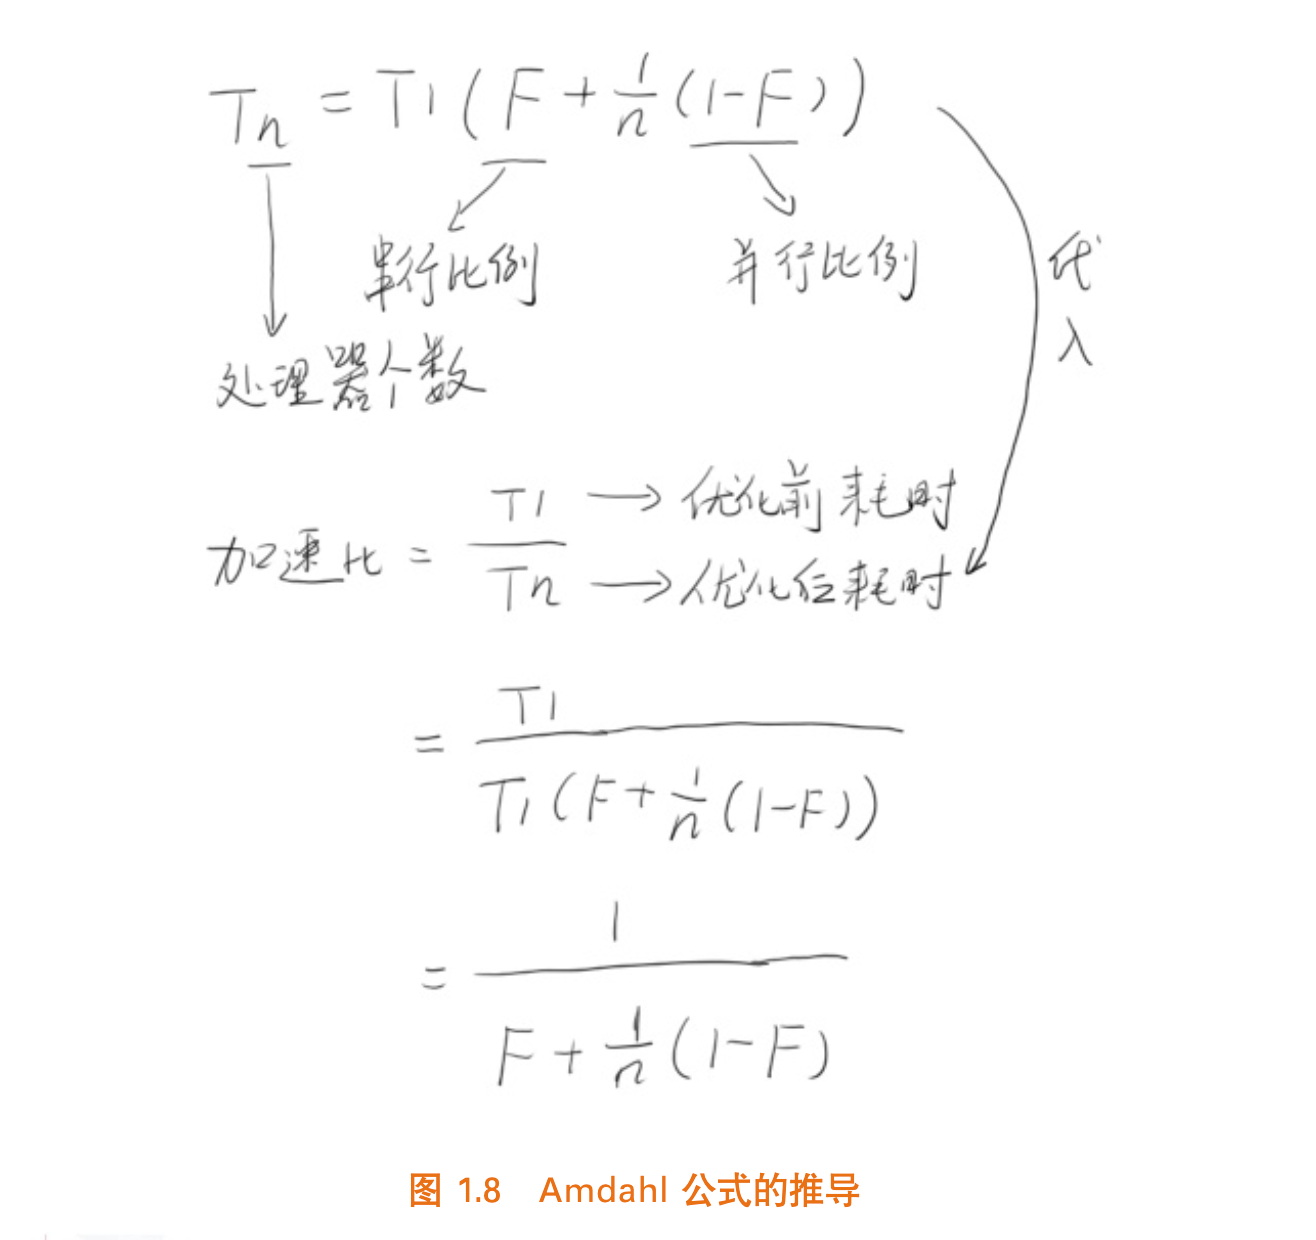 Tn = T1 ( F + 1/n (1-F) )
串行比例 并行比例
代入
处理器个数
加速比 = T1/Tn
T1 → 优化前耗时
Tn → 优化后耗时
= T1 / T1 ( F + 1/n (1-F) )
= 1 / F + 1/n (1-F)
图 1.8 Amdahl 公式的推导